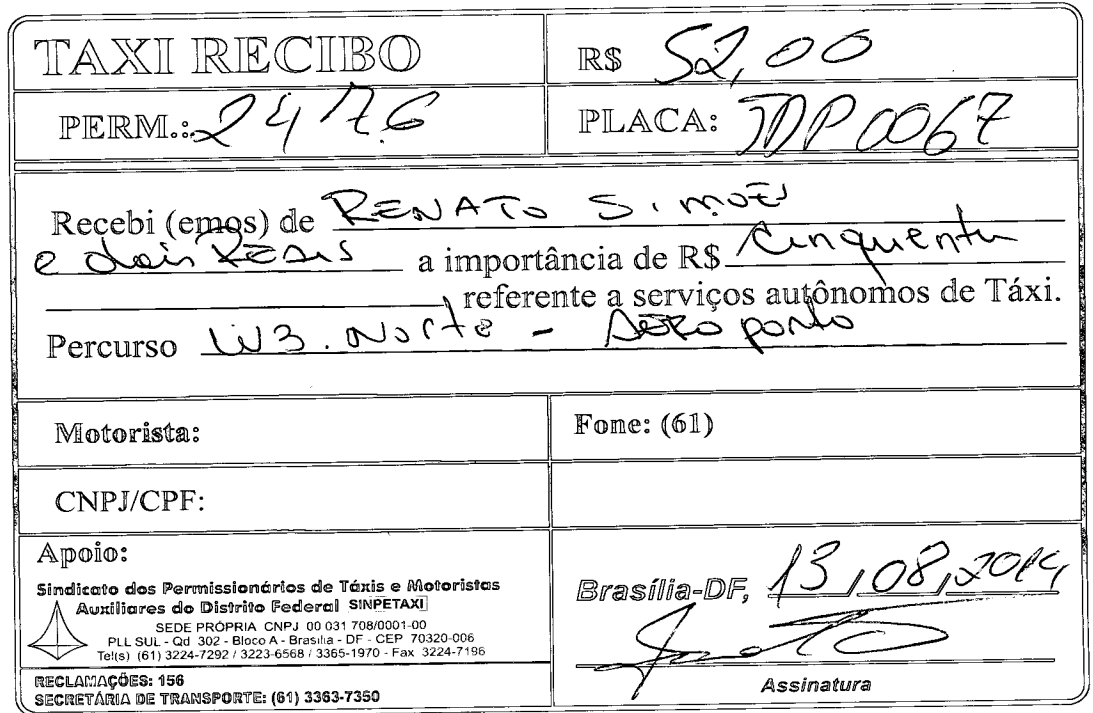 TAXI RECIBO
R$ 52,00
PERM.: 2476
PLACA: JDP 0067
Recebi (emos) de RENATO SIMOES
e dois REAIS a importância de R$ Cinquenta
referente a serviços autônomos de Táxi.
Percurso W3. Norte - AERO porto
Motorista:
Fone: (61)
CNPJ/CPF:
Apoio:
Sindicato dos Permissionários de Táxis e Motoristas
Auxiliares do Distrito Federal SINPETAXI
SEDE PRÓPRIA CNPJ 00 031 708/0001-00
PLL SUL - Qd 302 - Bloco A - Brasília - DF - CEP 70320-006
Tel(s) (61) 3224-7292 / 3223-6568 / 3365-1970 - Fax 3224-7186
RECLAMAÇÕES: 156
SECRETÁRIA DE TRANSPORTE: (61) 3363-7350
Brasília-DF, 13/08/2014
Assinatura